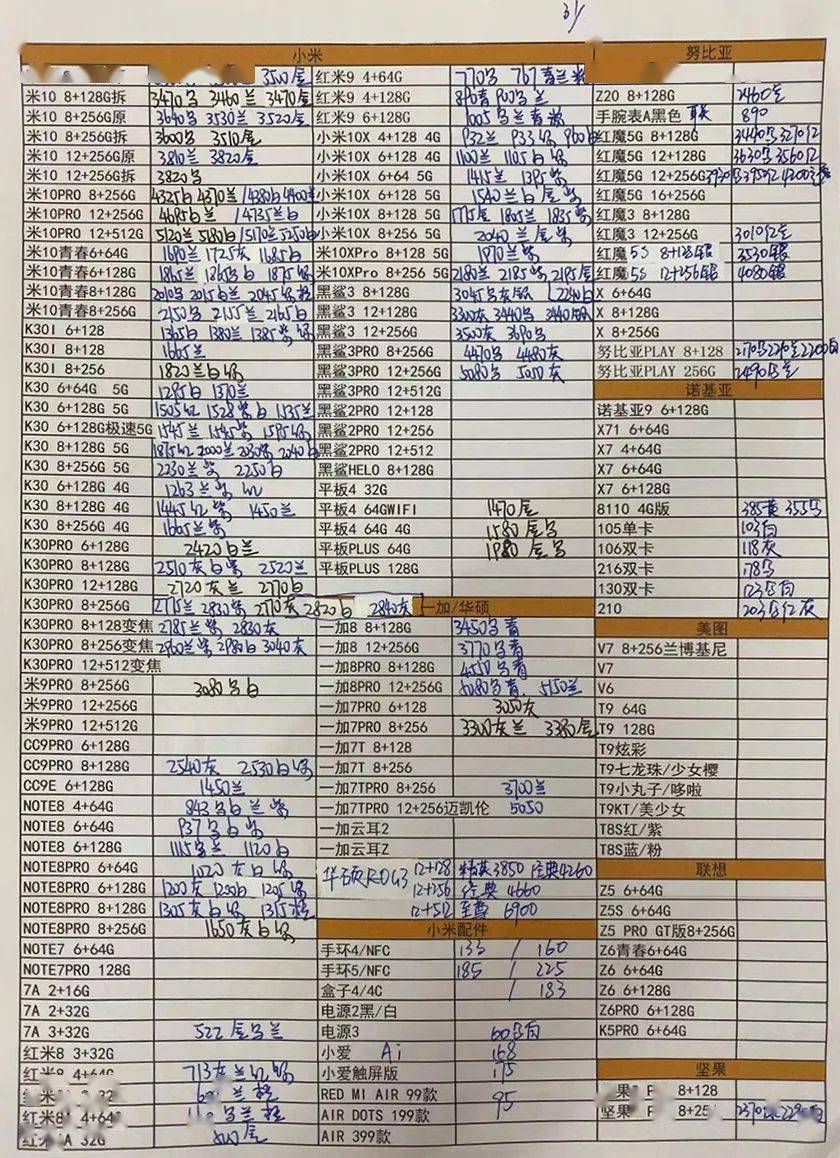 31
小米
3500金
米10 8+128G拆 3470乌 3460兰 3470金
米10 8+256G原 3640乌 3530兰 3520金
米10 8+256G拆 3600乌 3510金
米10 12+256G原 3820金
米10 12+256G拆 3820乌
米10PRO 8+256G 4325白 4370兰 /4380白 4400兰
米10PRO 12+256G 4695白 /4735兰白
米10PRO 12+512G 5120兰 5180白 /5170兰 5250白
米10青春6+64G 1690兰 1725灰 1685白
米10青春6+128G 1865兰 1865乌白 1875紫
米10青春8+128G 2010乌 2015白兰
米10青春8+256G 2150乌 2155兰 2165白
K30I 6+128 1365白 1380兰 1385紫
K30I 8+128 1665兰
K30I 8+256 1820兰白
K30 6+64G 5G 1295白 1370兰
K30 6+128G 5G 1505红 1528紫白 1535兰
K30 6+128G极速5G 1545兰 1545紫
K30 8+128G 5G 1875红 2000兰 2030紫 2040白
K30 8+256G 5G 2230兰紫 2250白
K30 6+128G 4G 1263兰紫 红
K30 8+128G 4G 1445红紫 1450兰
K30 8+256G 4G 1605兰紫
K30PRO 6+128G 2420白兰
K30PRO 8+128G 2510灰白紫 2520兰
K30PRO 12+128G 2720灰兰 2770白
K30PRO 8+256G 2775兰 2830紫 2770灰 2820白 2840灰
K30PRO 8+128变焦 2785兰紫 2830灰
K30PRO 8+256变焦 2960兰紫 2980白 3040灰
K30PRO 12+512变焦
米9PRO 8+256G 3080乌白
米9PRO 12+256G
米9PRO 12+512G
CC9PRO 6+128G
CC9PRO 8+128G 2540灰 2530白
CC9E 6+128G 1450兰
NOTE8 4+64G 843乌白兰紫
NOTE8 6+64G 937乌白
NOTE8 6+128G 1115乌兰 1120白
NOTE8PRO 6+64G 1020灰白
NOTE8PRO 6+128G 1200灰 1200白 1205
NOTE8PRO 8+128G 1305灰白 1315橙
NOTE8PRO 8+256G 1650灰白
NOTE7 6+64G
NOTE7PRO 128G
7A 2+16G
7A 2+32G
7A 3+32G 522金乌兰
红米8 3+32G
红米8 4+64G 713灰兰红
红米8 4+64G 乌兰橙
32G 金
红米9 4+64G 770乌 767青兰
红米9 4+128G 890青 900乌兰
红米9 6+128G 1005乌青
小米10X 4+128 4G 932兰 933 960白
小米10X 6+128 4G 1100兰 1105白
小米10X 6+64 5G 1415兰 1395紫
小米10X 6+128 5G 1540兰白金紫
小米10X 8+128 5G 1775金 1805兰 1835紫
小米10X 8+256 5G 2040兰金紫
米10XPro 8+128 5G 1970兰紫
米10XPro 8+256 5G 2180兰 2185紫 2195金
黑鲨3 8+128G 3045乌灰银
黑鲨3 12+128G 3300灰 3440乌 3440银
黑鲨3 12+256G 3500灰 3690乌
黑鲨3PRO 8+256G 4470乌 4480灰
黑鲨3PRO 12+256G 5080乌 5050灰
黑鲨3PRO 12+512G
黑鲨2PRO 12+128
黑鲨2PRO 12+256
黑鲨2PRO 12+512
黑鲨HELO 8+128G
平板4 32G
平板4 64GWIFI 1470金
平板4 64G 4G 1580金乌
平板PLUS 64G 1980金乌
平板PLUS 128G
一加/华硕
一加8 8+128G 3450乌青
一加8 12+256G 3770乌青
一加8PRO 8+128G 4550乌青
一加8PRO 12+256G 5080乌青 5150兰
一加7PRO 6+128 3050灰
一加7PRO 8+256 3300灰兰 3380金
一加7T 8+128
一加7T 8+256
一加7TPRO 8+256 3700兰
一加7TPRO 12+256迈凯伦 5050
一加云耳2
一加云耳Z
华硕ROG3 12+128 精英3850 经典4260
12+256 经典 4660
12+512 至尊 6900
小米配件
手环4/NFC 133 / 160
手环5/NFC 185 / 225
盒子4/4C / 183
电源2黑/白
电源3 60乌白
小爱 Ai 168
小爱触屏版 175
RED MI AIR 99款 95
AIR DOTS 199款
AIR 399款
努比亚
Z20 8+128G 2460
手腕表A黑色 联 890
红魔5G 8+128G 3440乌 3270红
红魔5G 12+128G 3630乌 3560红
红魔5G 12+256G 3930乌
红魔5G 16+256G
红魔3 8+128G
红魔3 12+256G 3010红
红魔5S 8+128银 3530银
红魔5S 12+256银 4080银
X 6+64G
X 8+128G
X 8+256G
努比亚PLAY 8+128 2170乌 2200白
努比亚PLAY 256G 2490
诺基亚
诺基亚9 6+128G
X71 6+64G
X7 4+64G
X7 6+64G
X7 6+128G
8110 4G版 385黄 355乌
105单卡 103白
106双卡 118灰
216双卡 178乌
130双卡 123乌白
210 203乌红灰
美图
V7 8+256兰博基尼
V7
V6
T9 64G
T9 128G
T9炫彩
T9七龙珠/少女樱
T9小丸子/哆啦
T9KT/美少女
T8S红/紫
T8S蓝/粉
联想
Z5 6+64G
Z5S 6+64G
Z5 PRO GT版8+256G
Z6青春6+64G
Z6 6+64G
Z6 6+128G
Z6PRO 6+128G
K5PRO 6+64G
坚果
8+128
坚果